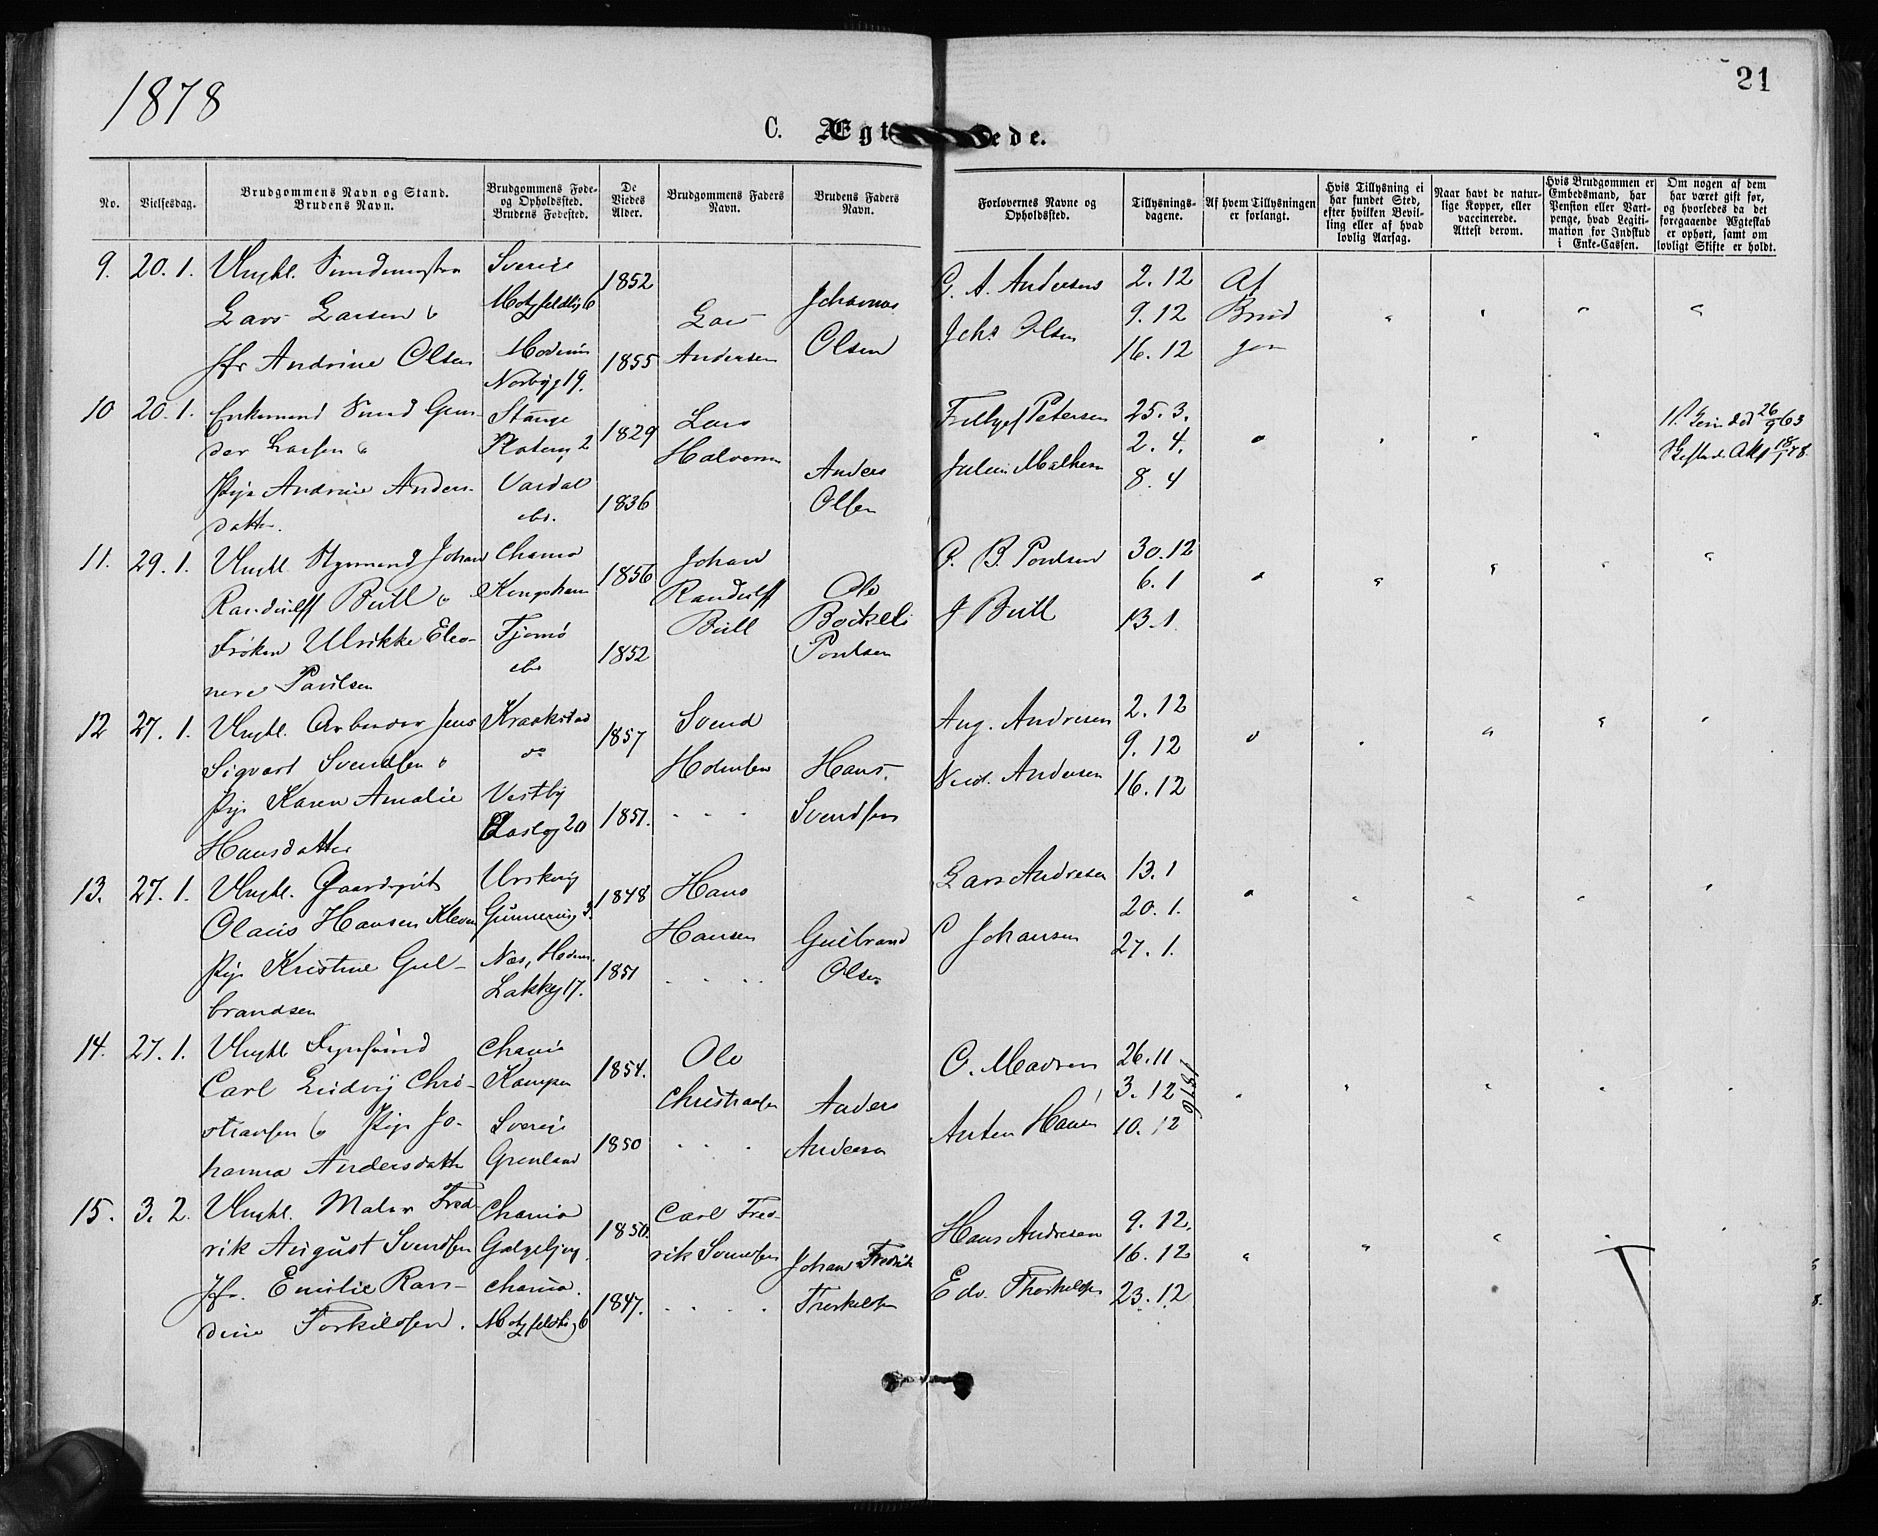 1878
21
C. Ægt ede.
No.
Vielsesdag.
Brudgommens Navn og Stand.
Brudens Navn.
Brudgommens Føde-
og Opholdssted.
Brudens Fødested.
De
Viedes
Alder.
Brudgommens Faders
Navn.
Brudens Faders
Navn.
Forlovernes Navne og
Opholdssted.
Tillysnings-
dagene.
Af hvem Tillysningen
er forlangt.
Hvis Tillysning ei
har fundet Sted,
efter hvilken Bevil-
ling eller af hvad
lovlig Aarsag.
Naar havt de natur-
lige Kopper, eller
vaccinerede.
Attest derom.
Hvis Brudgommen er
Embedsmand, har
Pension eller Vart-
penge, hvad Legiti-
mation for Indskud
i Enke-Cassen.
Om nogen af dem
har været gift før,
og hvorledes da det
foregaaende Ægteskab
er ophørt, samt om
lovligt Skifte er holdt.
9. 20. 1. Ungkl.
Lars Larsen &
Jfr Andrine Olsen
Sverige
Motzfeldtsg 6
Modum
Norbyg 19.
1852
1855
Lars
Andersen
Johannes
Olsen
G. A. Andersen
Johs Olsen
2. 12
9. 12
16. 12
Af
Brud
gom
10 20. 1. Enkemand Smed Gun-
der Larsen &
Pige Andrine Anders-
datter.
Stange
Platous 2
Vardal
ibd.
1829
1836
Lars
Halvorsen
Anders
Olsen
Petersen
Mathesen
25. 3.
2. 4.
8. 4
26/9 63
Skifteds. Att 18/1 78.
11. 29. 1. Ungkl Styrmand Johan
Randulff Bull &
Frøken Ulrikke Eleo-
nore Paulsen
Chania
Kongshavn
Tjømø
1856
1852
Johan
Randulff
Bull
Ole
Paulsen
O. B. Poulsen
J Bull
30. 12
6. 1
13. 1
12 27. 1. Ungkl. Arbeider Jens
Sigvart Svendsen &
Pige Karen Amalie
Hansdatter
Kraakstad
do
Vestby
20
1857
1851.
Svend
Holmsen
Hans
Svendsen
Aug. Andresen
Andersen
2. 12
9. 12
16. 12
13. 27. 1. Ungkl. Gaardsgut
Olaus Hansen Kleven
Pige Kristine Gul-
brandsen
Urskoug
Gunnerug 3.
Nes, Hedem.
Lakkeg 17.
1848
1851
Hans
Hansen
Gulbrand
Olsen
Lars Andresen
C Johansen
13. 1
20. 1.
27. 1.
14. 27. 1. Ungkl
Carl Ludvig Chri-
stiansen & Pige Jo-
hanna Andersdatter
Chania
Kampen
Sverige
Grønland
1854.
1850
Ole
Christiansen
Anders
Anderson
O. Madsen
Anton Hansen
26. 11
3. 12
10. 12
1876
15. 3. 2. Ungkl. Maler Fred-
rik August Svendsen
Jfr. Emilie Ran-
dine Torkildsen.
Chania
Galgebjerg.
Chania.
Motzfeldtsg 6
1850.
1847.
Carl Fred-
rik Svendsen
Johan Fredrik
Therkelsen
Hans Andresen
Edv. Therkelsen
9. 12.
16. 12
23. 12